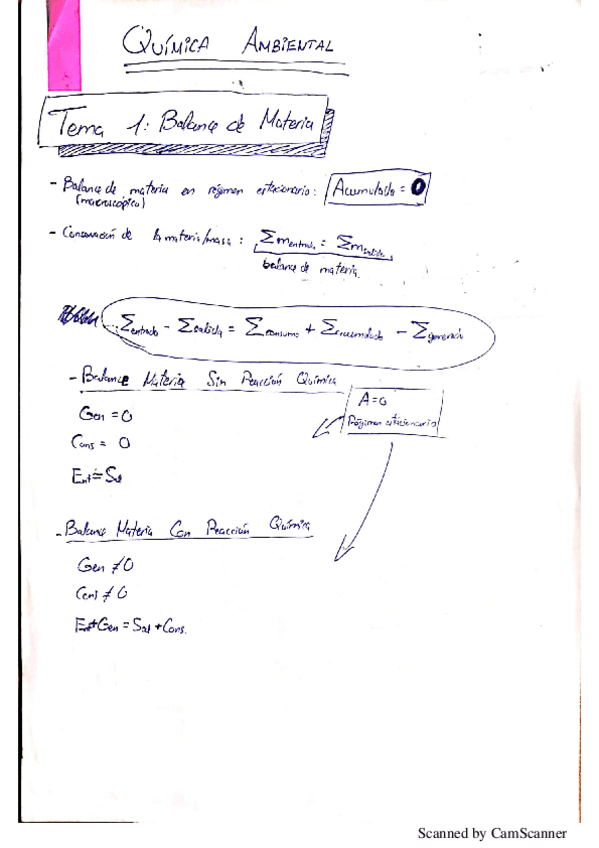 QUÍMICA AMBIENTAL
Tema 1: Balance de Materia
- Balance de materia en régimen estacionario: Acumulado = 0
(macroscópico)
- Conservación de la materia/masa: Σmentrada = Σmsalida
balance de materia.
Σentrada - Σsalida = Σconsumo + Σacumulado - Σgenerado
- Balance Materia Sin Reacción Química
A=0
Régimen estacionario
Gen = 0
Cons = 0
Ent = Sal
- Balance Materia Con Reacción Química
Gen ≠ 0
Cons ≠ 0
Ent+Gen = Sal + Cons.
Scanned by CamScanner